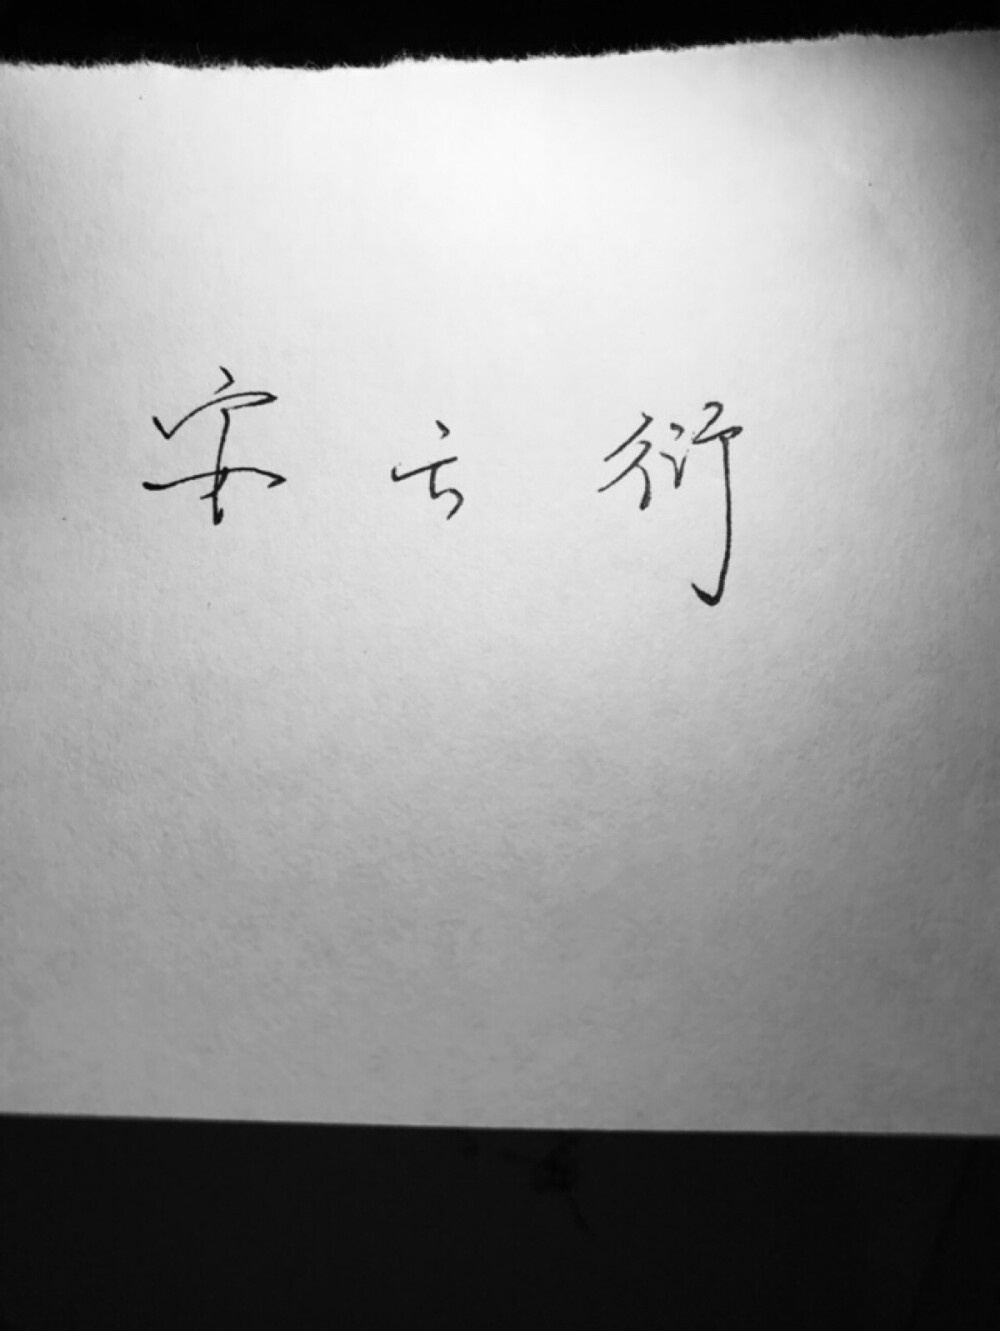 宋云衍